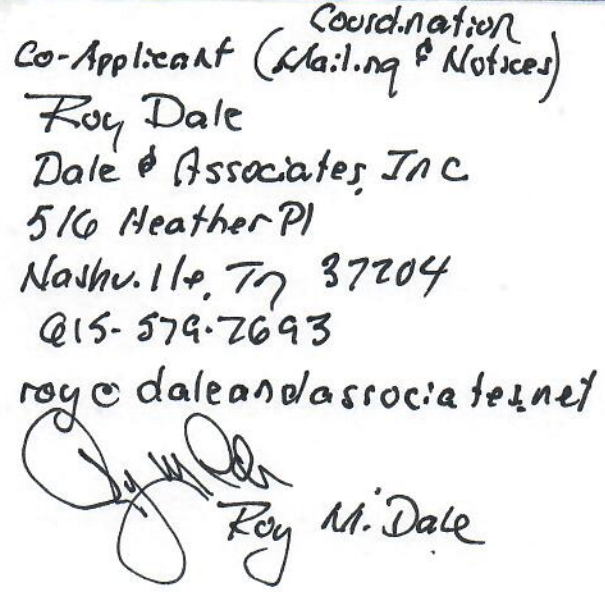 Coordination
Co-Applicant (Mailing & Notices)
Roy Dale
Dale & Associates, Inc
516 Heather Pl
Nashville, Tn 37204
615-579-7693
roy@daleandassociates.net
Roy M. Dale